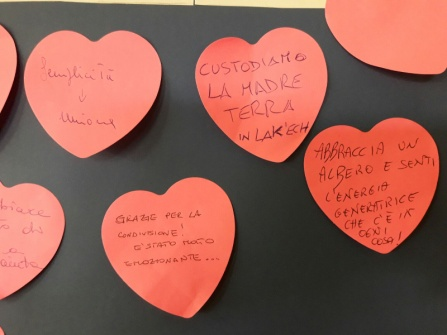 Semplicità
↓
Unione
CUSTODIAMO
LA MADRE
TERRA
IN LAK'ECH
ABBRACCIA UN
ALBERO E SENTI
L'ENERGIA
GENERATRICE
CHE C'È IN
OGNI
COSA!
GRAZIE PER LA
CONDIVISIONE!
E' STATO MOLTO
EMOZIONANTE...